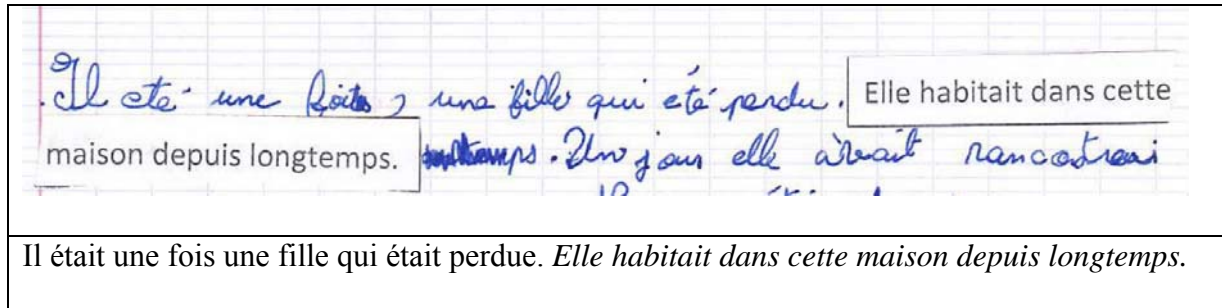 Il eté une foits, une fille qui été perdu. Elle habitait dans cette
maison depuis longtemps. Un jour elle avait rancontrai
Il était une fois une fille qui était perdue. Elle habitait dans cette maison depuis longtemps.